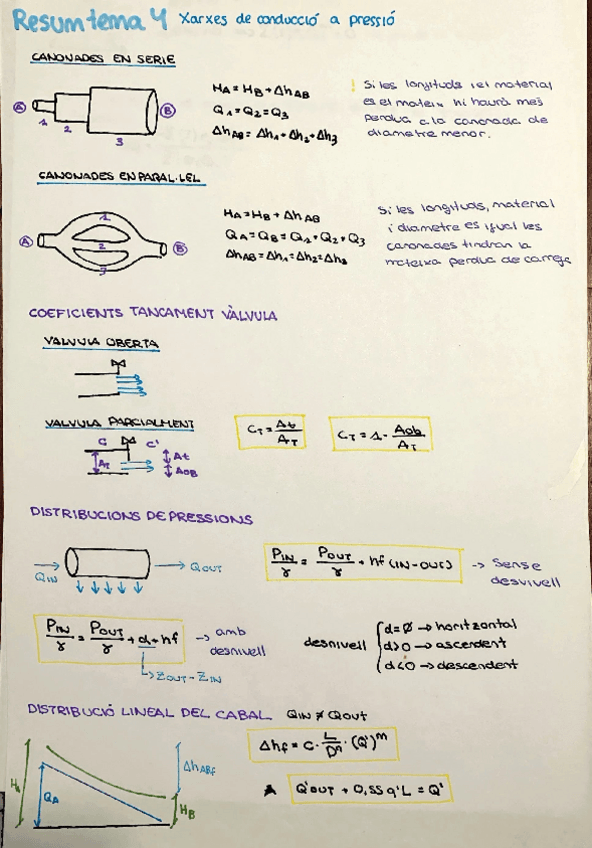 Resum tema 4 Xarxes de conducció a pressió
CANONADES EN SERIE
A
B
1
2
3
HA = HB + ΔhAB
Q1 = Q2 = Q3
ΔhAB = Δh1 + Δh2 + Δh3
! Si les longituds i el material
es el mateix hi haurà més
perdua a la canonada de
diametre menor.
CANONADES EN PARAL·LEL
A
B
1
2
3
HA = HB + ΔhAB
QA = QB = Q1 + Q2 + Q3
ΔhAB = Δh1 = Δh2 = Δh3
Si les longituds, material
i diametre es igual les
canonades tindran la
mateixa perdua de carrega
COEFICIENTS TANCAMENT VÀLVULA
VALVULA OBERTA
VALVULA PARCIALMENT
C
C'
AT
At
AOB
CT = At / AT
CT = 1 - AOB / AT
DISTRIBUCIONS DE PRESSIONS
QIN
QOUT
PIN/γ = POUT/γ + hf (IN-OUT)
→ Sense
desnivell
PIN/γ = POUT/γ + d + hf
→ amb
desnivell
↳ ZOUT - ZIN
desnivell
d=Ø → horitzontal
d>0 → ascendent
d<0 → descendent
DISTRIBUCIÓ LINEAL DEL CABAL QIN ≠ QOUT
HA
QA
ΔhABf
HB
Δhf = C · L/Dⁿ · (Q')ᵐ
Q'OUT + 0,55 q'L = Q'